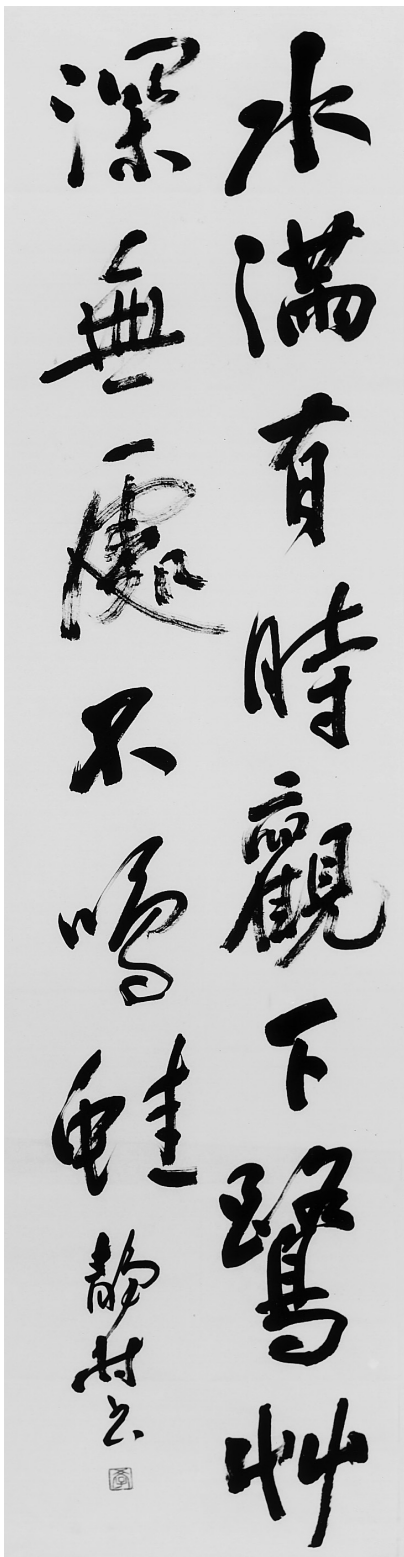 水滿有時觀下鷺艸
深無處不鳴蛙
静村書